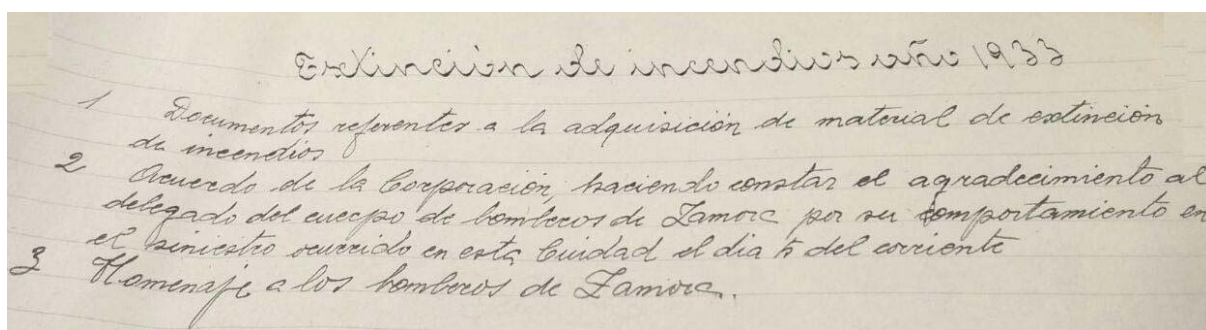 Extinción de incendios año 1933
1 Documentos referentes a la adquisición de material de extinción
de incendios
2 Acuerdo de la Corporación, haciendo constar el agradecimiento al
delegado del cuerpo de bomberos de Zamora por su comportamiento en
el siniestro ocurrido en esta Ciudad el dia 5 del corriente
3 Homenaje a los bomberos de Zamora.